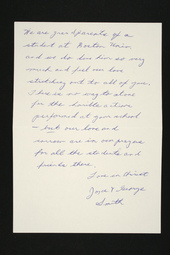 We are grandparents of a
student at Norton Union
and we do love him so very
much and feel our love
stretching out to all of you.
There is no way to atone
for the horrible action
performed at your school
— but our love and
sorrow are in our prayers
for all the students and
friends there.
Love in Christ
Joyce & George
Smith